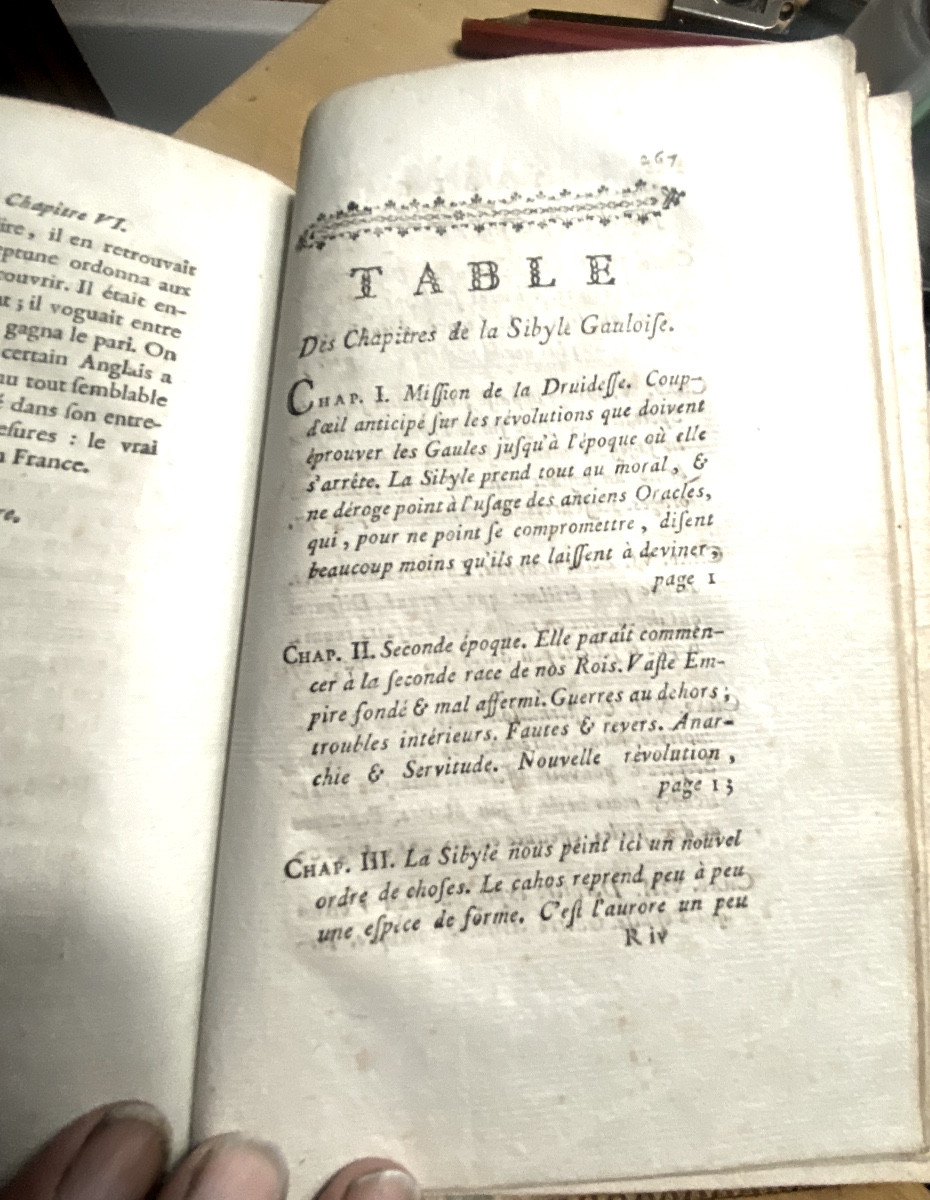 Chapitre VI.
ire, il en retrouvait
eptune ordonna aux
couvrir. Il était en-
nt; il voguait entre
gagna le pari. On
certain Anglais a
au tout ſemblable
é dans ſon entre-
eſures : le vrai
n France.
re.
267
TABLE
Des Chapitres de la Sibyle Gauloiſe.
CHAP. I. Miſſion de la Druideſſe. Coup-
d'œil anticipé ſur les révolutions que doivent
éprouver les Gaules juſqu'à l'époque où elle
s'arrête. La Sibyle prend tout au moral, &
ne déroge point à l'uſage des anciens Oracles,
qui, pour ne point ſe compromettre, diſent
beaucoup moins qu'ils ne laiſſent à deviner;
page 1
CHAP. II. Seconde époque. Elle paraît commen-
cer à la ſeconde race de nos Rois. Vaſte Em-
pire fondé & mal affermi. Guerres au dehors;
troubles intérieurs. Fautes & revers. Anar-
chie & Servitude. Nouvelle révolution,
page 13
CHAP. III. La Sibyle nous peint ici un nouvel
ordre de choſes. Le cahos reprend peu à peu
une eſpice de forme. C'eſt l'aurore un peu
R iv